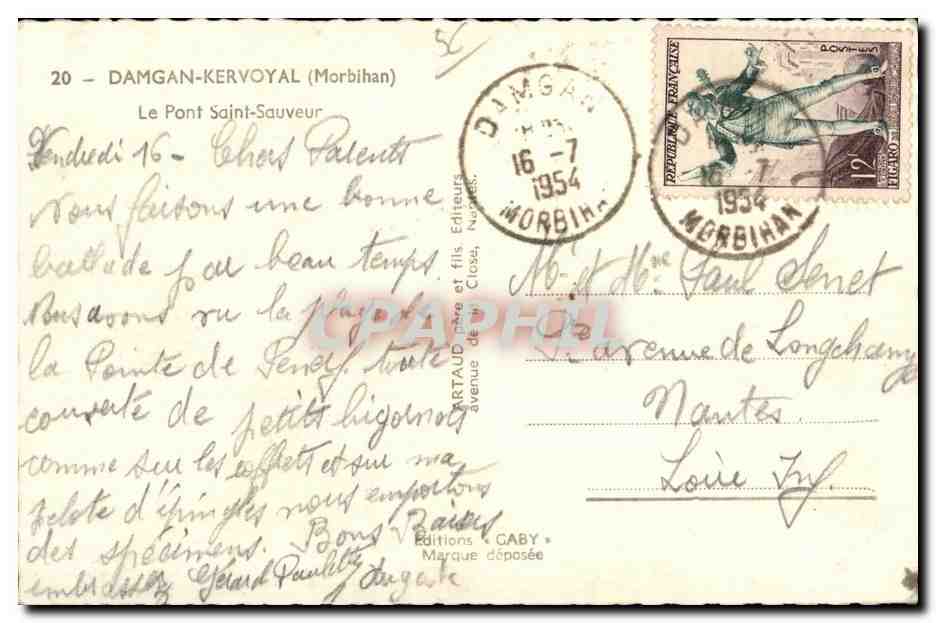 20 - DAMGAN-KERVOYAL (Morbihan)
Le Pont Saint-Sauveur
Vendredi 16 - Chers Parents
Nous faisons une bonne
ballade par beau temps
Nous avons vu la plage de
la Pointe de Penerf toute
couverte de petits bigorneaux
comme sur les coffrets et sur ma
pelote d'épingles nous emportons
des spécimens. Bons Baisers
embrassez Gérard Paulette
ARTAUD père et fils Editeurs
avenue de la Close, Nantes.
Editions « GABY »
Marque déposée
5c
DAMGAN
16 -7
1954
MORBIHAN
REPUBLIQUE FRANÇAISE
POSTES
12F
FIGARO
16 -7
1954
MORBIHAN
Mr et Mme Paul
avenue de Longchamp
Nantes
Loire Inf.
CPAPHIL